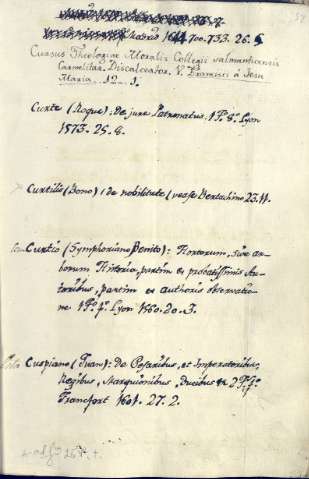 Madrid 1644 700. 733. 26. 5
Cursus Theologiae Moralis Collegii salmanticensis
Carmelitar. Discalceator. V. Francisci á Jesu
Maria. 12. 1.
Curte (Roque): de jure Patronatus. 1 tº 8º Lyon
1573. 25. 8.
Curtilis (Bono): de nobilitate (vease Bertachino 23. 11.
Curtio (Symphoriano Benito): Hortorum, sive ar-
borum Historia, partim ex probatissimis Au-
toribus, partim ex authoris observatio-
ne 1 tº fº Lyon 1560. 20. 3.
Cuspiano (Juan): de Cesaribus, et Imperatoribus,
Regibus, Marquionibus, Ducibus &c 2 tº fº
Francfort 1601. 27. 2.